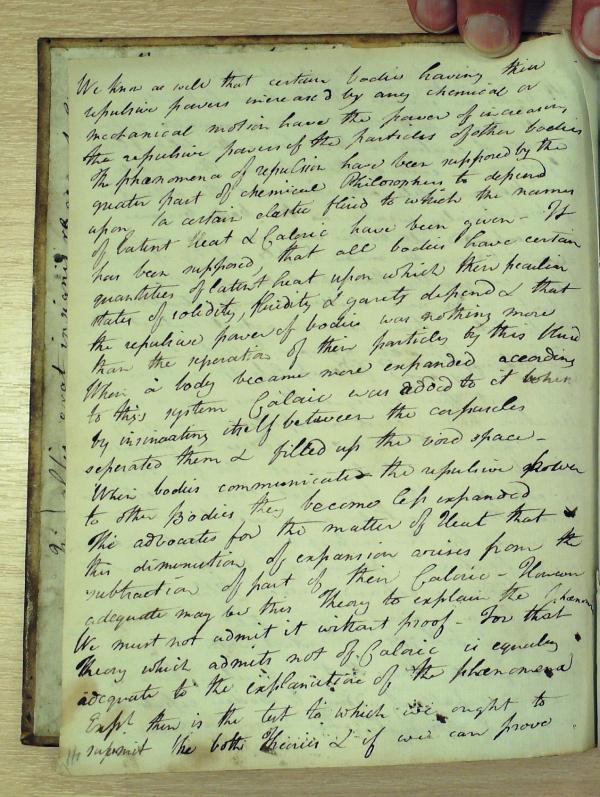 We know as well that certain bodies having their
repulsive powers increased by any chemical or
mechanical motion have the power of increasing
the repulsive powers of the particles of other bodies
The phænomena of repulsion have been supposed by the
greater part of chemical Philosophers to depend
upon a certain elastic fluid to which the names
of latent heat & Caloric have been given - It
has been supposed, that all bodies have certain
quantities of latent heat upon which their peculiar
states of solidity, fluidity & gasity depend & that
the repulsive power of bodies was nothing more
than the seperation of their particles by this fluid
When a body became more expanded according
to this system Caloric was added to it when
by insinuating itself between the corpuscles
seperated them & filled up the void space -
When bodies communicated the repulsive power
to other Bodies they become less expanded
The advocates for the matter of Heat that
this diminution of expansion arises from the
subtraction of part of their Caloric - However
adequate may be this Theory to explain the phænom
We must not admit it without proof - For that
Theory which admits not of Caloric is equally
adequate to the explanation of the phænomena
Expt then is the test to which we ought to
submit the both Theories & if we can prove